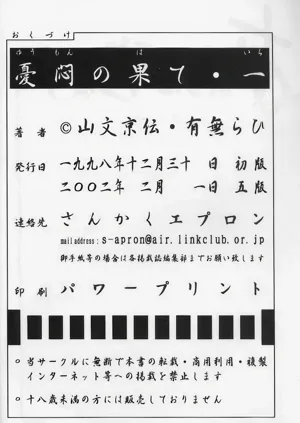 おくづけ
ゆうもん は いち
憂悶の果て・一
著者 ©山文京伝・有無らひ
発行日 一九九八年十二月三十 日 初版
二〇〇二年 二月 一日 五版
連絡先 さんかくエプロン
mail address : s-apron@air.linkclub.or.jp
御手紙等の場合は各掲載誌編集部までお願い致します
印刷 パワープリント
○当サークルに無断で本書の転載・商用利用・複製
インターネット等への掲載を禁止します
○十八歳未満の方には販売しておりません